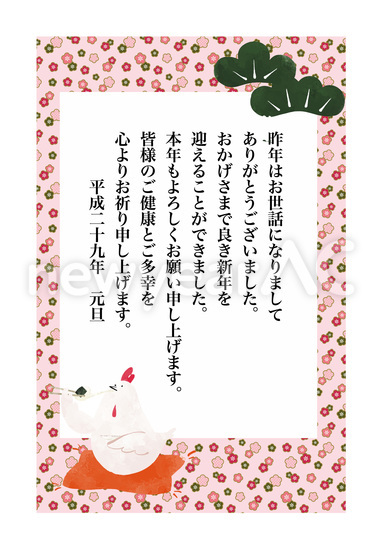 昨年はお世話になりまして
ありがとうございました。
おかげさまで良き新年を
迎えることができました。
本年もよろしくお願い申し上げます。
皆様のご健康とご多幸を
心よりお祈り申し上げます。
平成二十九年　元旦
new year AC